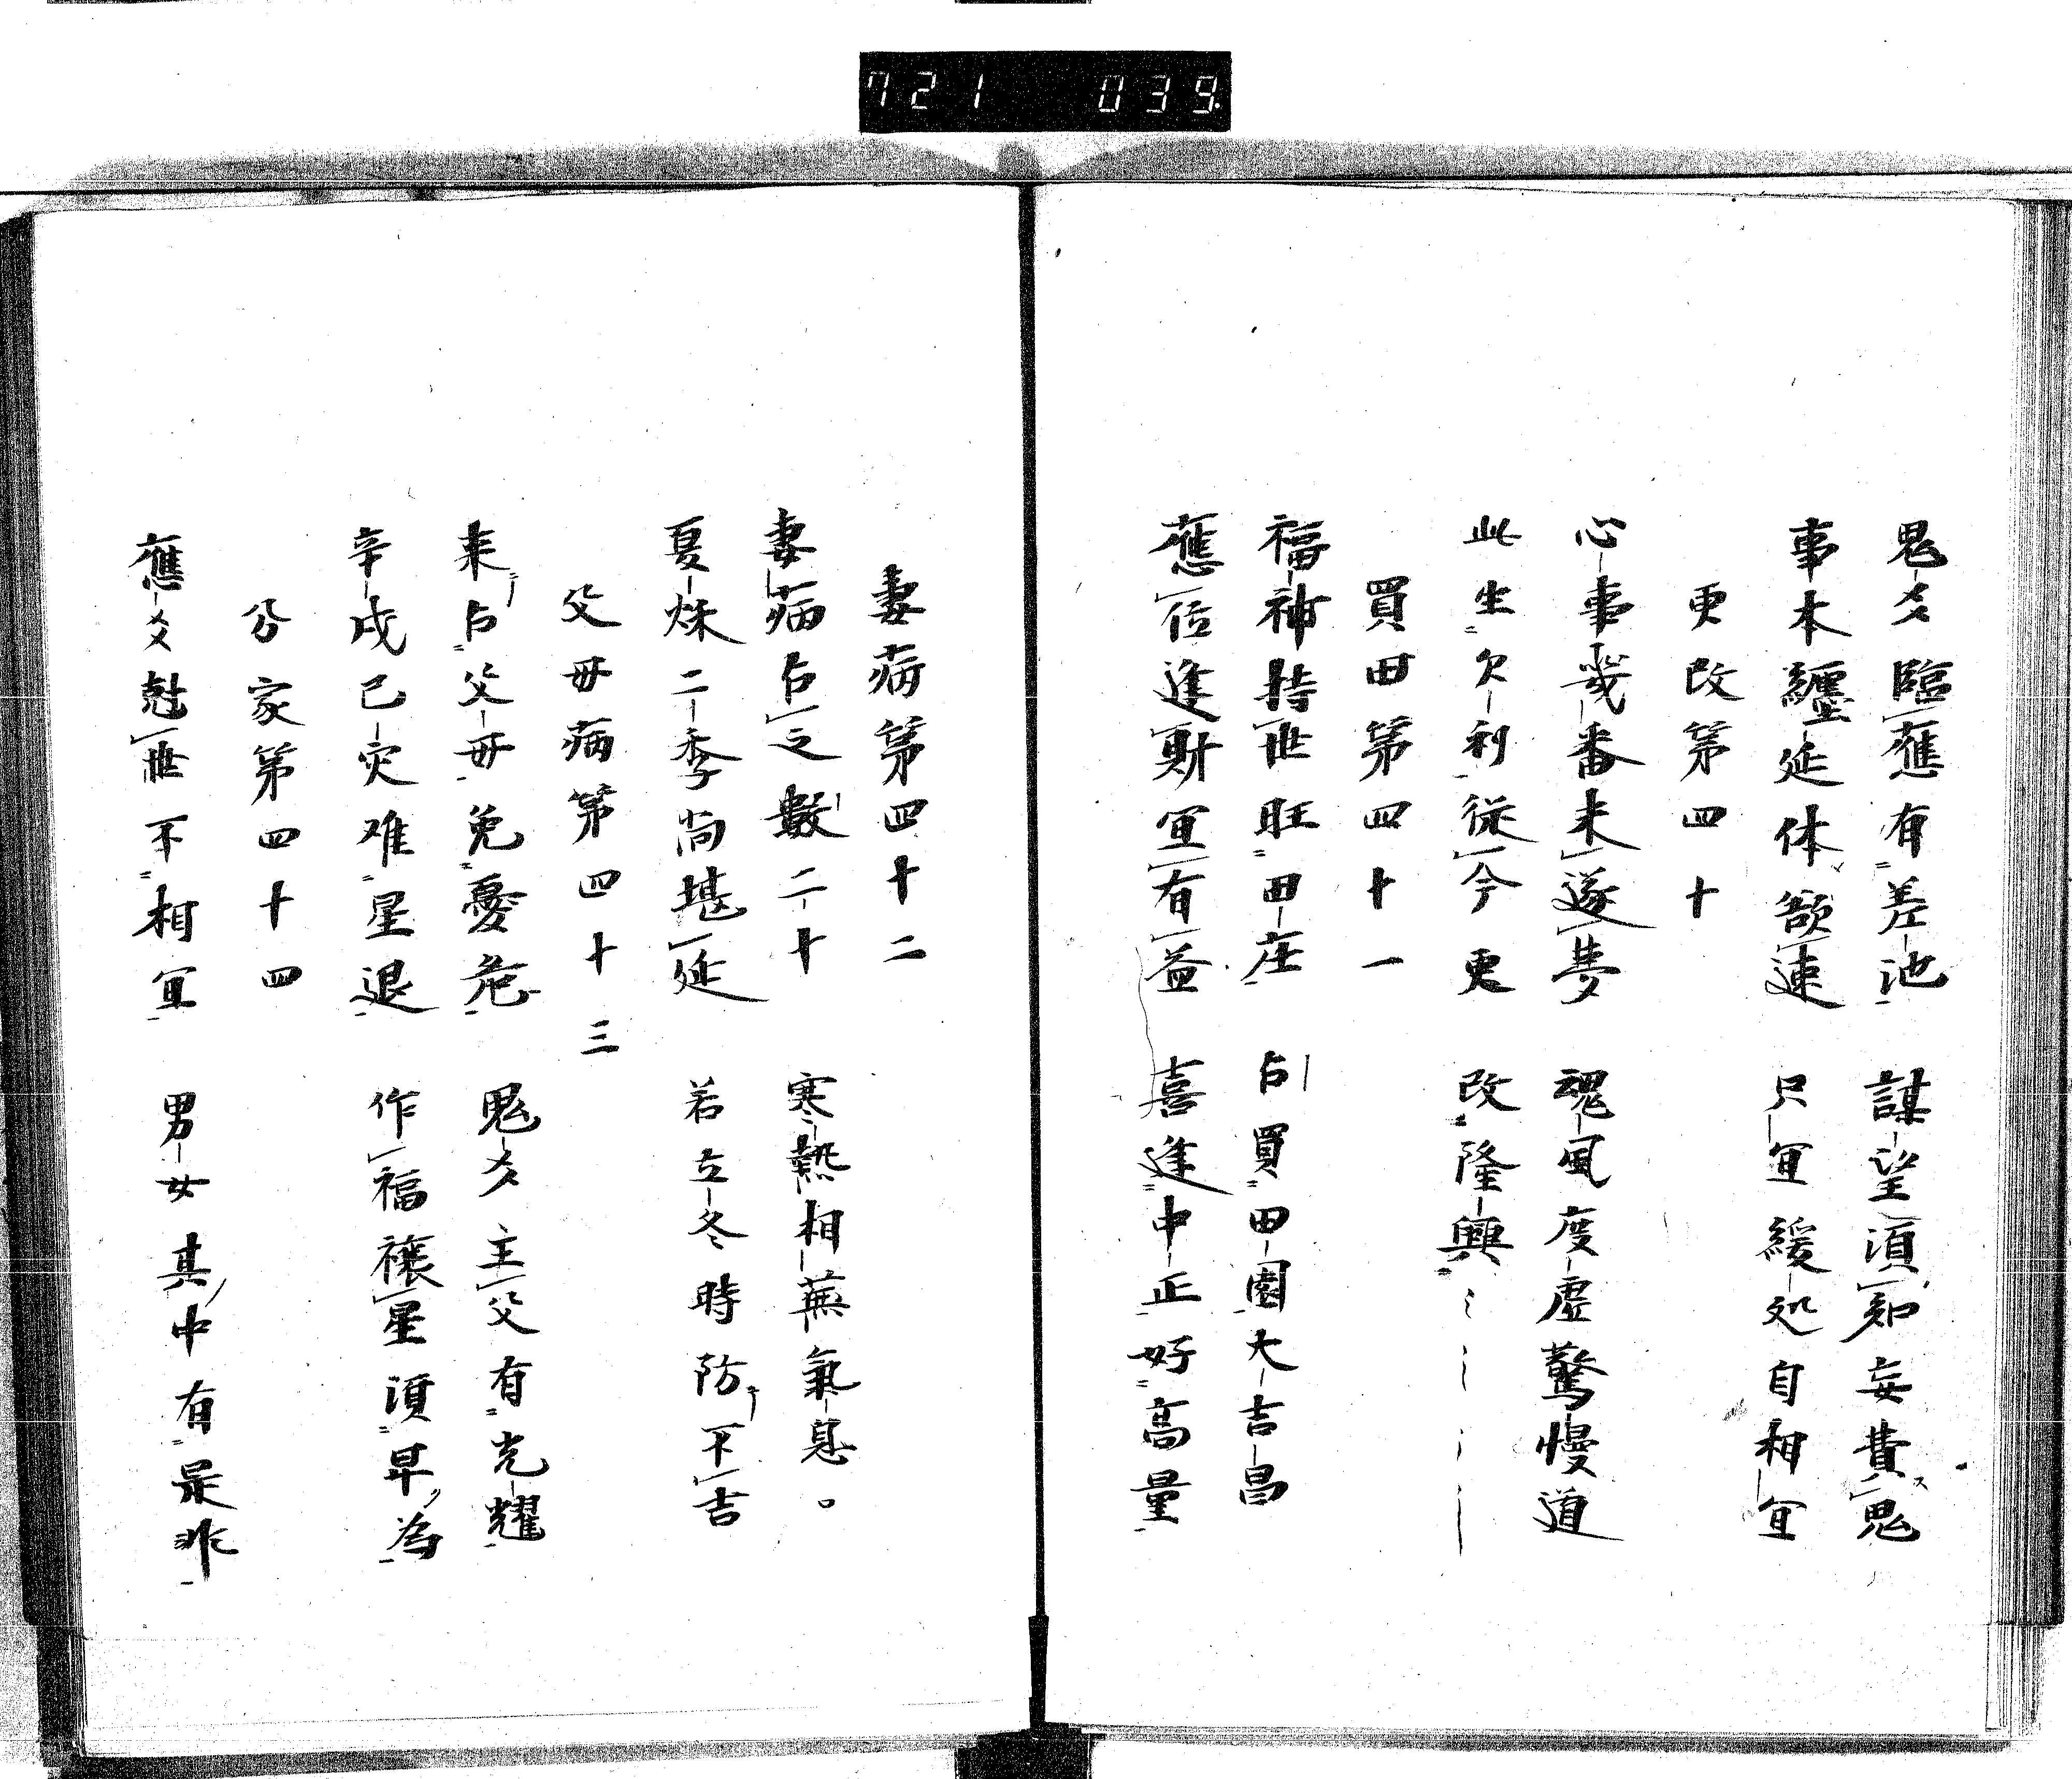 721 039
鬼爻臨應有差池 謀望須知妄費鬼
事本纒延体欲速 只宜緩处自相宜
更改第四十
心事幾番未遂夢 魂風度虚驚慢道
此生欠利從今更 改隆興
買田第四十一
福神持世旺田庄 占買田園大吉昌
應位進財宜有益 喜逢中正好高量
妻病第四十二
妻病占之數二十 寒熱相蕪氣息。
夏秌二季尚堪延 若立冬時防不吉
父毋病第四十三
来占父毋免憂危 鬼爻主父有光耀
辛戌己灾难星退 作福禳星須早為
分家第四十四
應爻尅世不相宜 男女其中有是非